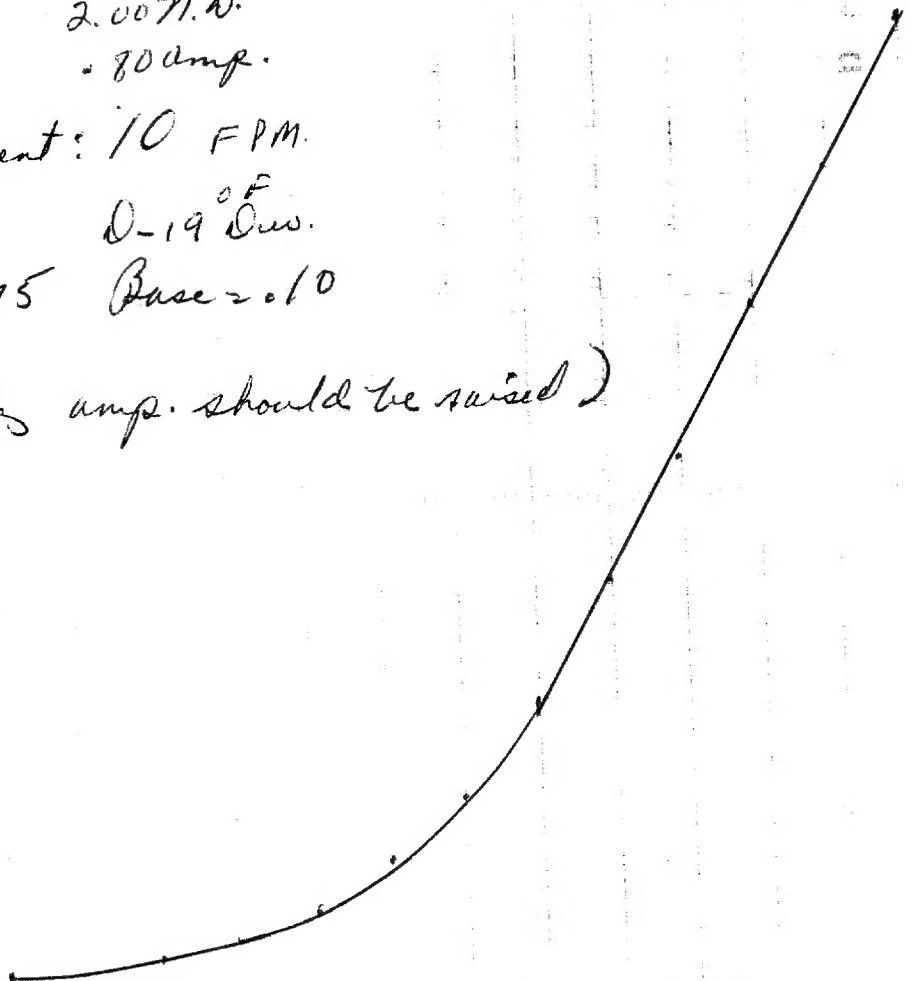 2.00 N.D.
.80 amp.
ent: 10 FPM.
D-19 °F Dev.
Base = .10
amp. should be raised)